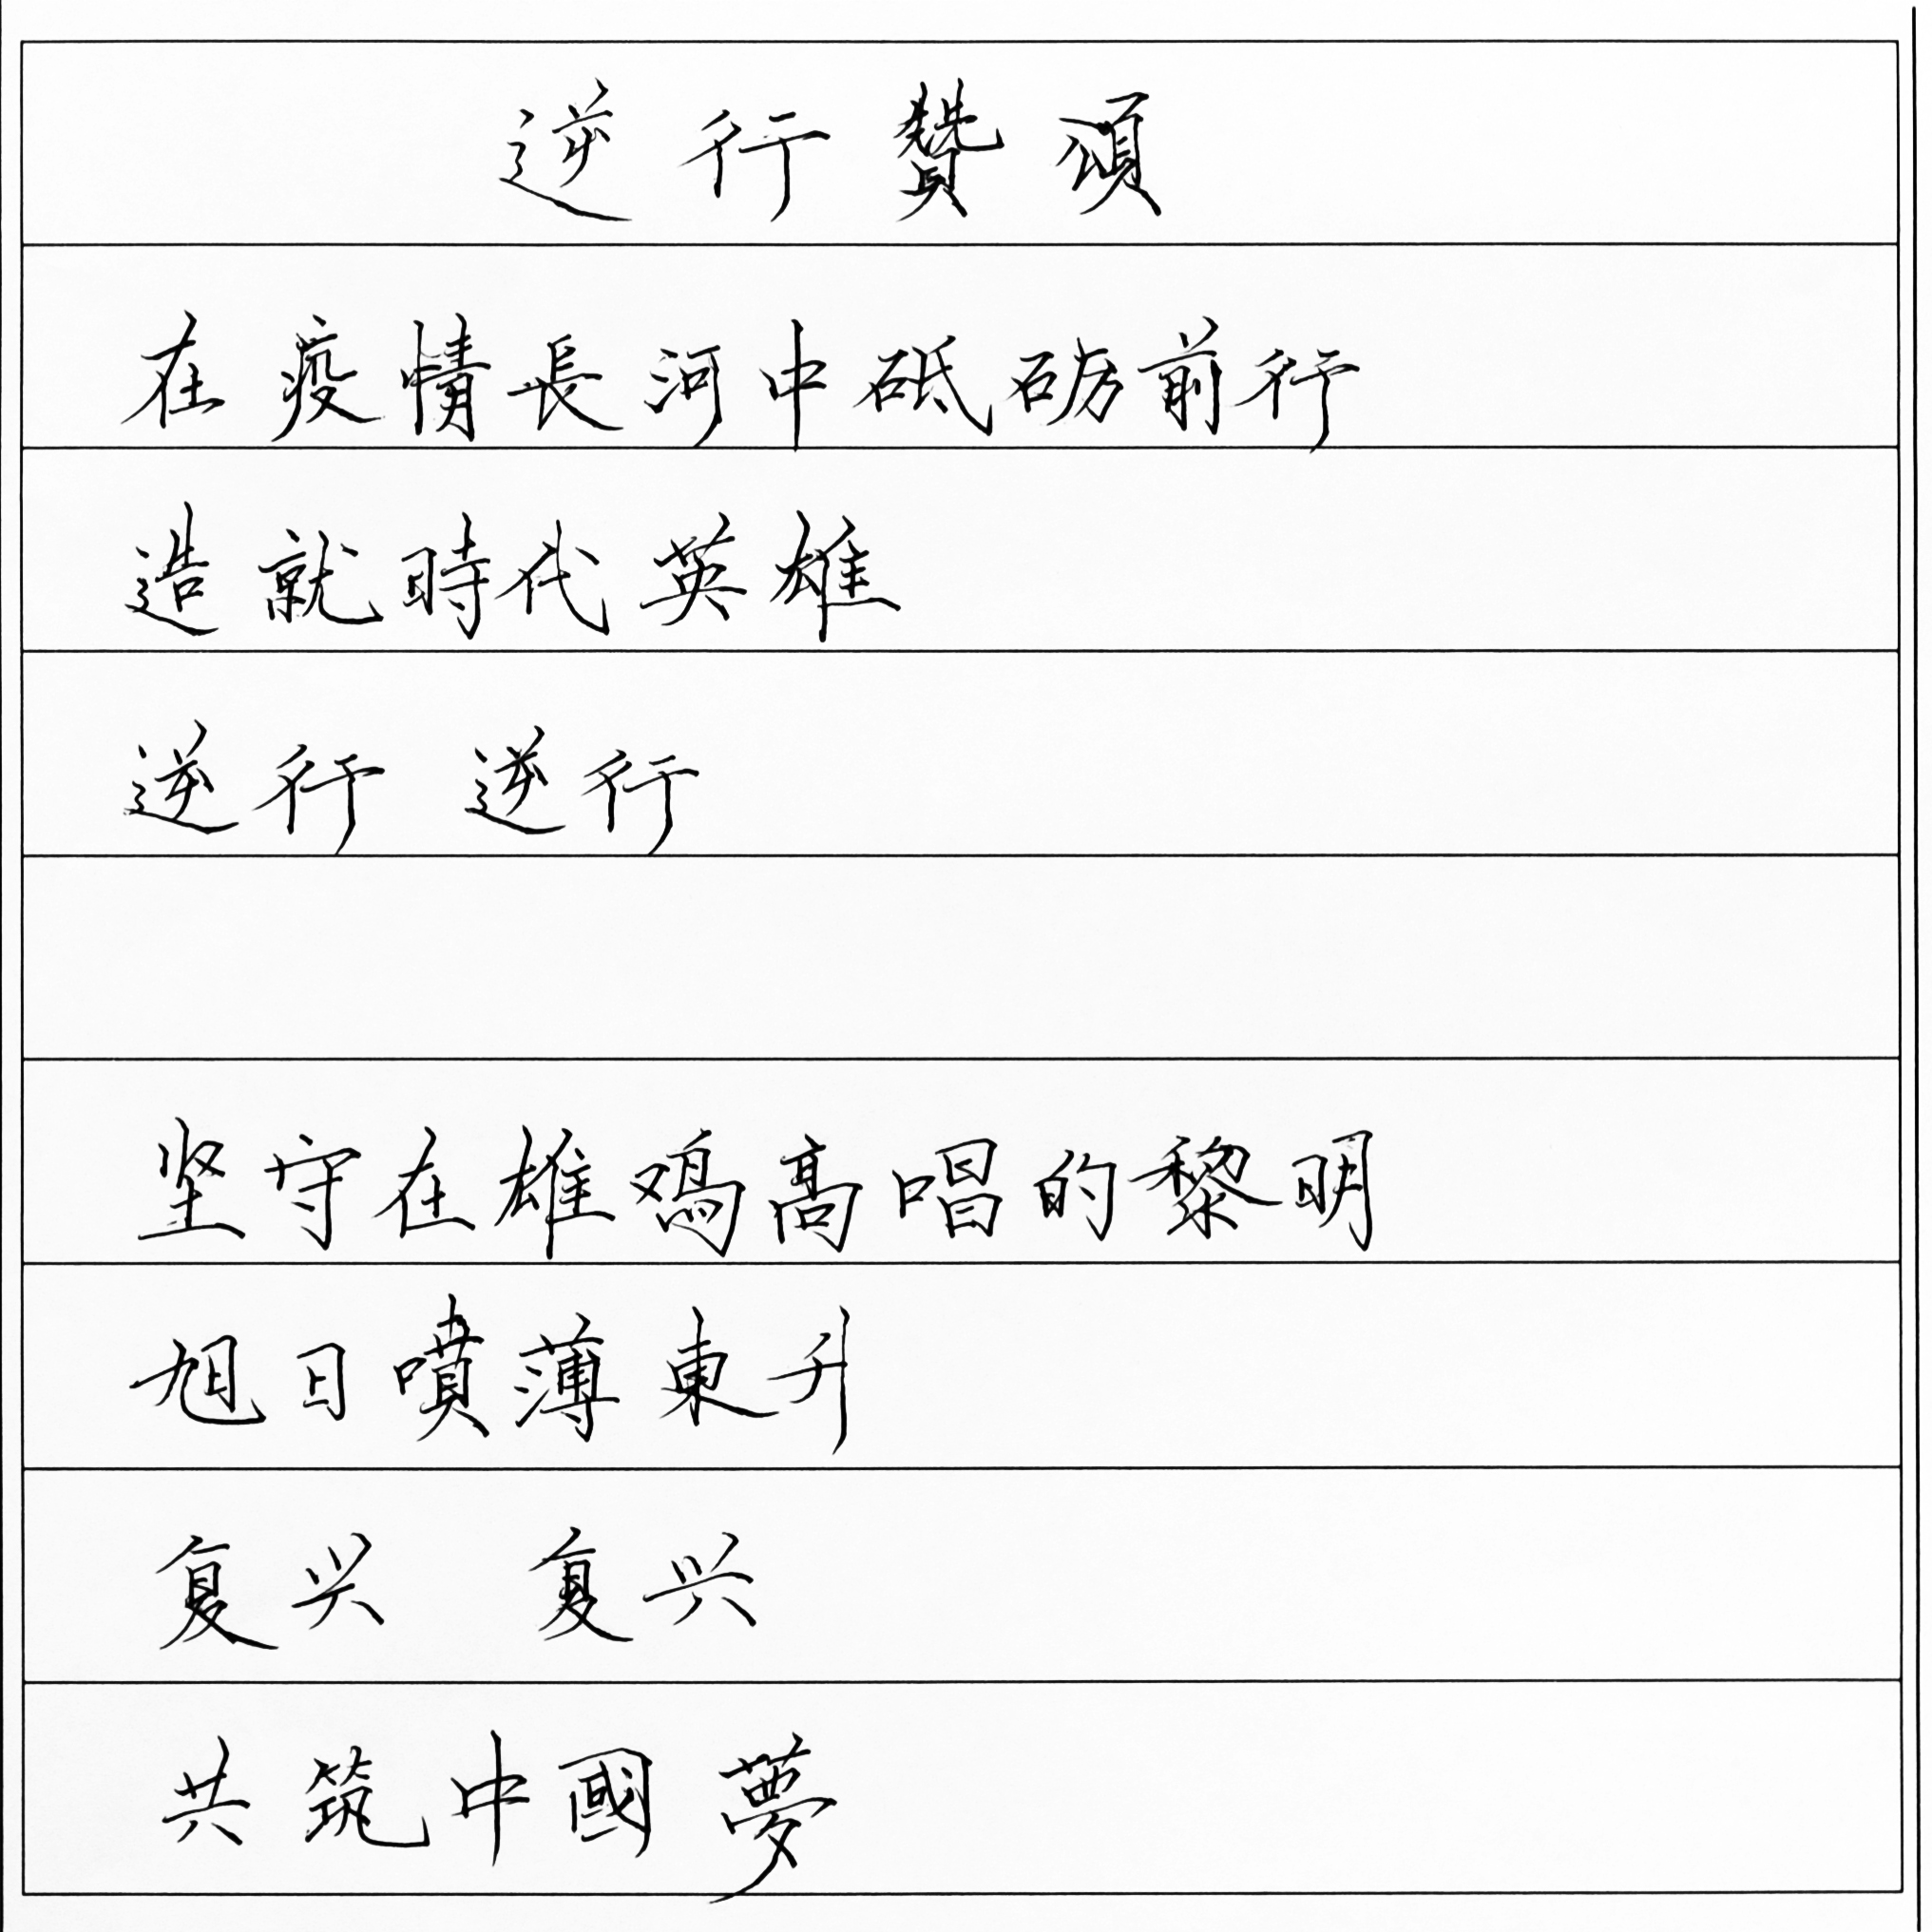 逆行贊頌
在疫情長河中砥砺前行
造就時代英雄
逆行 逆行
坚守在雄鸡高唱的黎明
旭日噴薄東升
复兴 复兴
共筑中國夢